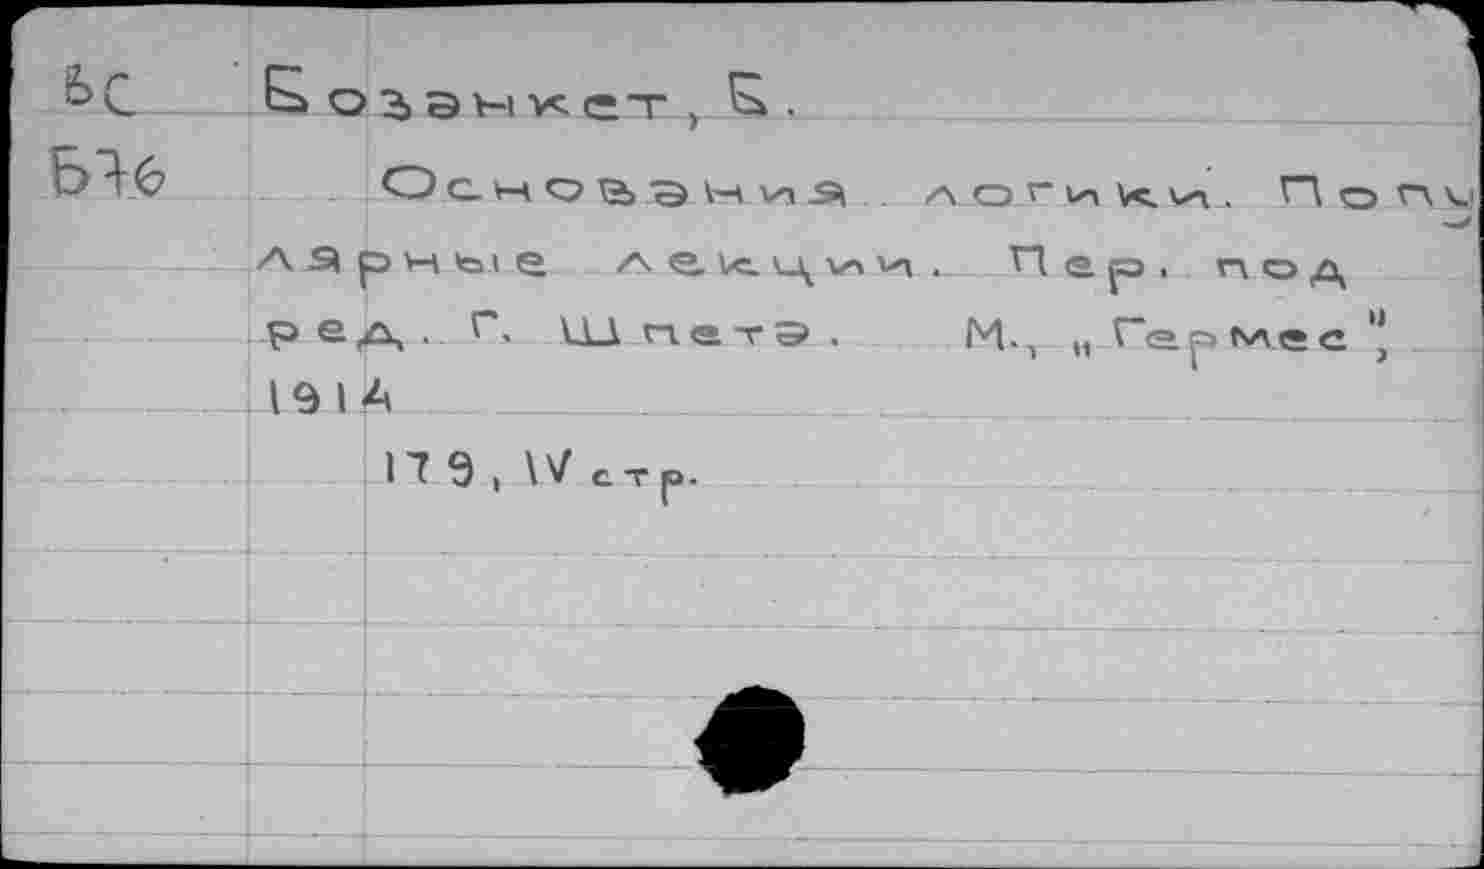 ЬС Бозанкет, Б.
Б76 Основания логики. Попу
лярные лекции. Пер. под
ред. Г. Шпета. М., „Гермес",
1914
179, IV стр.